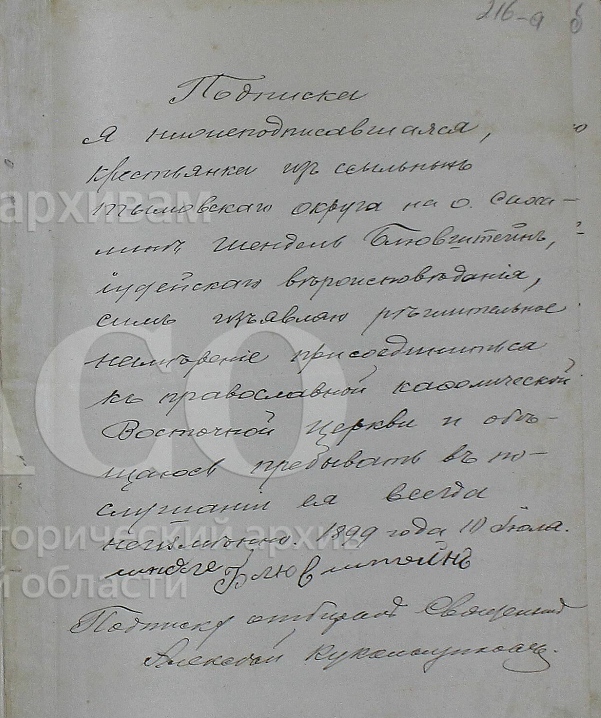 216-а
Подписка
Я нижеподписавшаяся,
крестьянка изъ ссыльныхъ
Тымовскаго округа на о. Саха-
линѣ Шендель Блювштейнъ,
іудейскаго вѣроисповѣданія,
симъ изъявляю рѣшительное
намѣреніе присоединиться
къ православной каѳолической
Восточной Церкви и обѣ-
щаюсь пребывать въ по-
слушаніи ея всегда
неизмѣнно. 1899 года 10 Іюля.
Блювштейнъ
Подписку отбиралъ Священникъ
Алексѣй
архивам
АСО
торический архив
й области